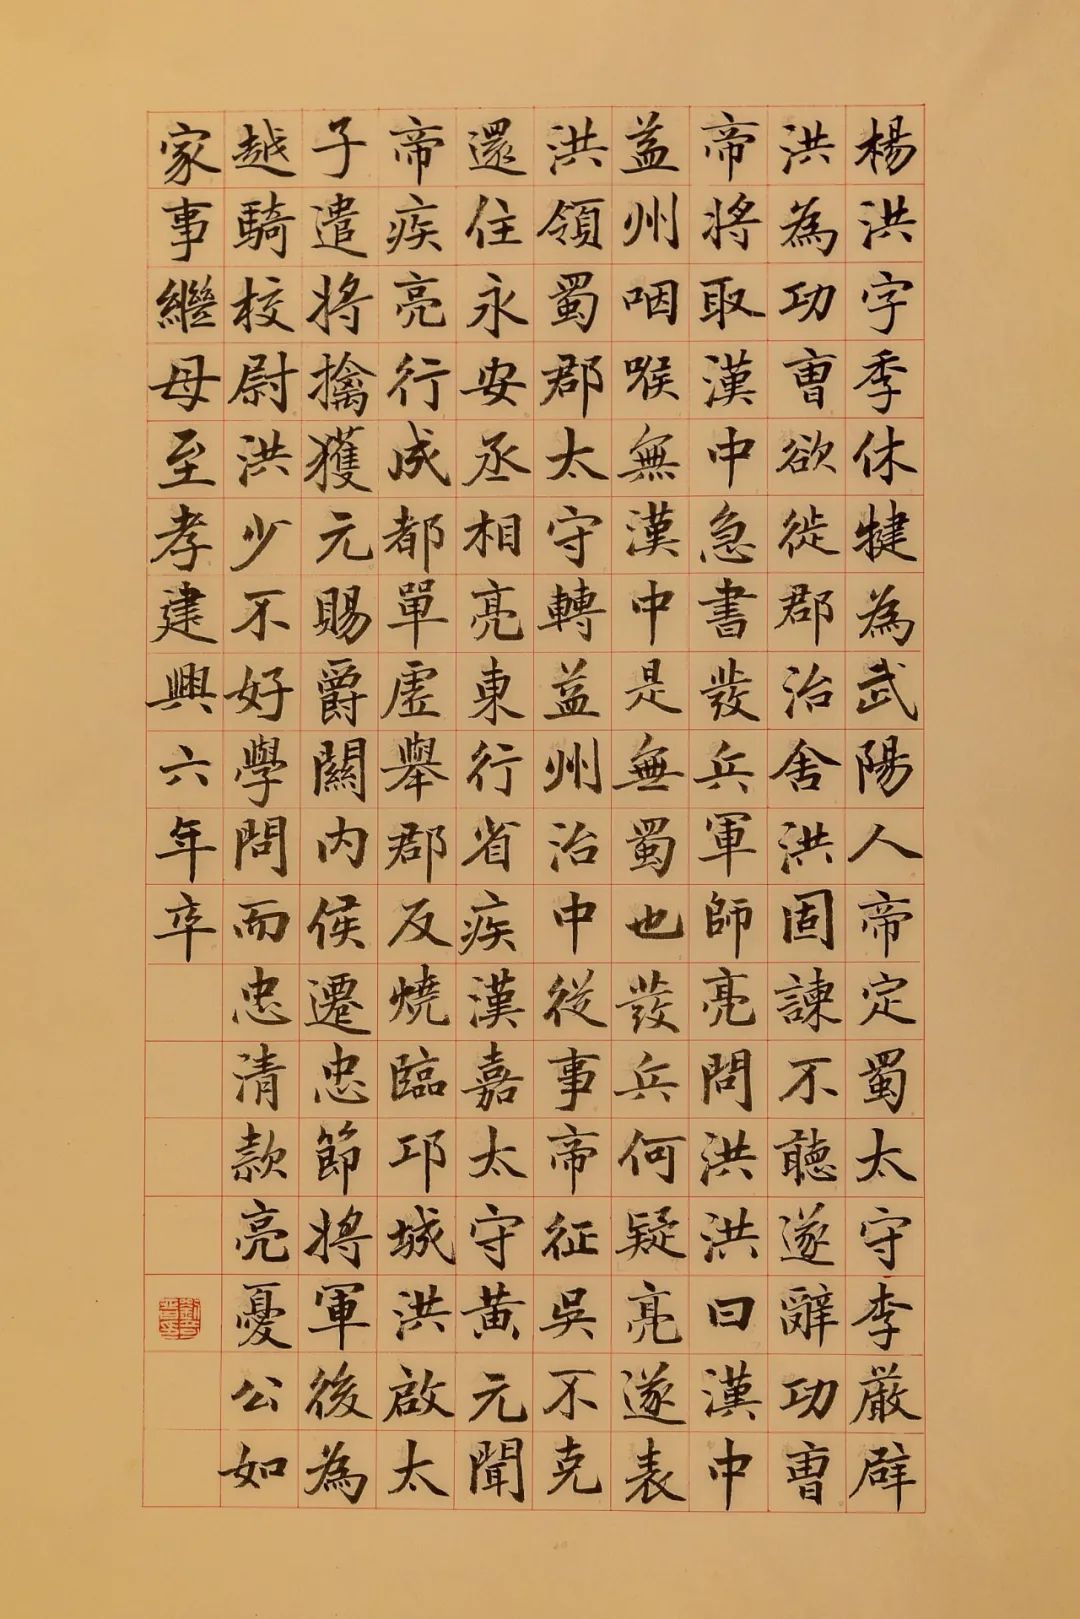 楊洪字季休犍為武陽人帝定蜀太守李厳辟
洪為功曺欲徙郡治舍洪固諫不聴遂辭功曺
帝将取漢中急書發兵軍師亮問洪洪曰漢中
益州咽喉無漢中是無蜀也發兵何疑亮遂表
洪領蜀郡太守轉益州治中従事帝征吳不克
還住永安丞相亮東行省疾漢嘉太守黃元聞
帝疾亮行成都單虛舉郡反燒臨邛城洪啟太
子遣将擒獲元賜爵關内侯遷忠節将軍後為
越騎校尉洪少不好學問而忠清款亮憂公如
家事繼母至孝建興六年卒